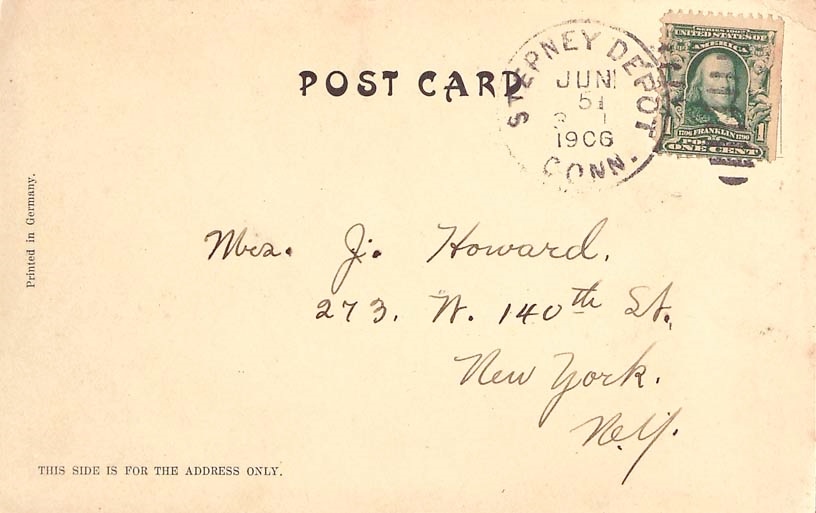 SERIES 1902
UNITED STATES OF
AMERICA
1706 FRANKLIN 1790
1 1
ONE CENT
POST CARD
STEPNEY DEPOT
JUN
5
1906
CONN.
Printed in Germany.
Mrs. J. Howard.
273. W. 140th St.
New York.
N.Y.
THIS SIDE IS FOR THE ADDRESS ONLY.